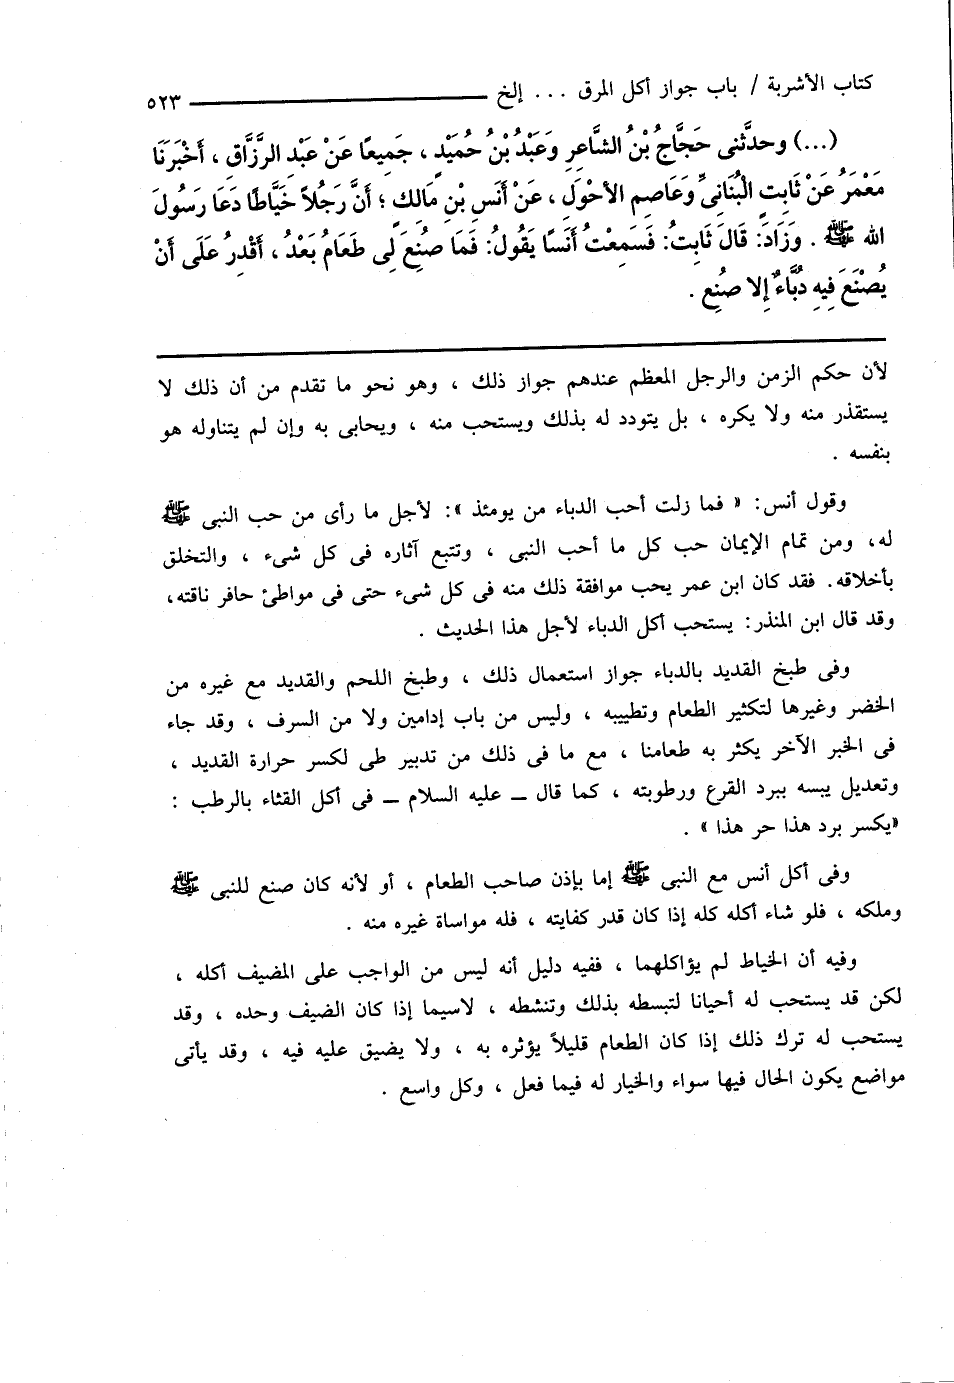 كتاب الأشربة / باب جواز أكل المرق ... إلخ ــــــــــــ ٥٢٣
(...) وحدثنى حَجَّاجُ بْنُ الشَّاعِرِ وَعَبْدُ بْنُ حُمَيْدٍ ، جَمِيعًا عَنْ عَبْدِ الرَّزَّاقِ ، أَخْبَرَنَا
مَعْمَرُ عَنْ ثَابِتٍ الْبُنَانِىِّ وَعَاصِمٍ الأحْوَلِ ، عَنْ أَنَسِ بْنِ مَالِك ؛ أَنَّ رَجُلاً خَيَّاطًا دَعَا رَسُولَ
الله ﷺ . وَزَادَ: قَالَ ثَابِتُ: فَسَمِعْتُ أَنَسًا يَقُولُ: فَمَا صُنِعَ لِى طَعَامُ بَعْدُ ، أَقْدِرُ عَلَى أَنْ
يُصْنَعَ فِيهِ دُبَّاءٌ إِلا صُنِعَ .
لأن حكم الزمن والرجل المعظم عندهم جواز ذلك ، وهو نحو ما تقدم من أن ذلك لا
يستقذر منه ولا يكره ، بل يتودد له بذلك ويستحب منه ، ويحابى به وإن لم يتناوله هو
بنفسه .
وقول أنس: « فما زلت أحب الدباء من يومئذ »: لأجل ما رأى من حب النبى ﷺ
له، ومن تمام الإيمان حب كل ما أحب النبى ، وتتبع آثاره فى كل شىء ، والتخلق
بأخلاقه. فقد كان ابن عمر يحب موافقة ذلك منه فى كل شىء حتى فى مواطئ حافر ناقته،
وقد قال ابن المنذر: يستحب أكل الدباء لأجل هذا الحديث .
وفى طبخ القديد بالدباء جواز استعمال ذلك ، وطبخ اللحم والقديد مع غيره من
الخضر وغيرها لتكثير الطعام وتطييبه ، وليس من باب إدامين ولا من السرف ، وقد جاء
فى الخبر الآخر يكثر به طعامنا ، مع ما فى ذلك من تدبير طى لكسر حرارة القديد ،
وتعديل يبسه ببرد القرع ورطوبته ، كما قال ــ عليه السلام ــ فى أكل القثاء بالرطب :
«يكسر برد هذا حر هذا» .
وفى أكل أنس مع النبى ﷺ إما بإذن صاحب الطعام ، أو لأنه كان صنع للنبى ﷺ
وملكه ، فلو شاء أكله كله إذا كان قدر كفايته ، فله مواساة غيره منه .
وفيه أن الخياط لم يؤاكلهما ، ففيه دليل أنه ليس من الواجب على المضيف أكله ،
لكن قد يستحب له أحيانا لتبسطه بذلك وتنشطه ، لاسيما إذا كان الضيف وحده ، وقد
يستحب له ترك ذلك إذا كان الطعام قليلاً يؤثره به ، ولا يضيق عليه فيه ، وقد يأتى
مواضع يكون الحال فيها سواء والخيار له فيما فعل ، وكل واسع .